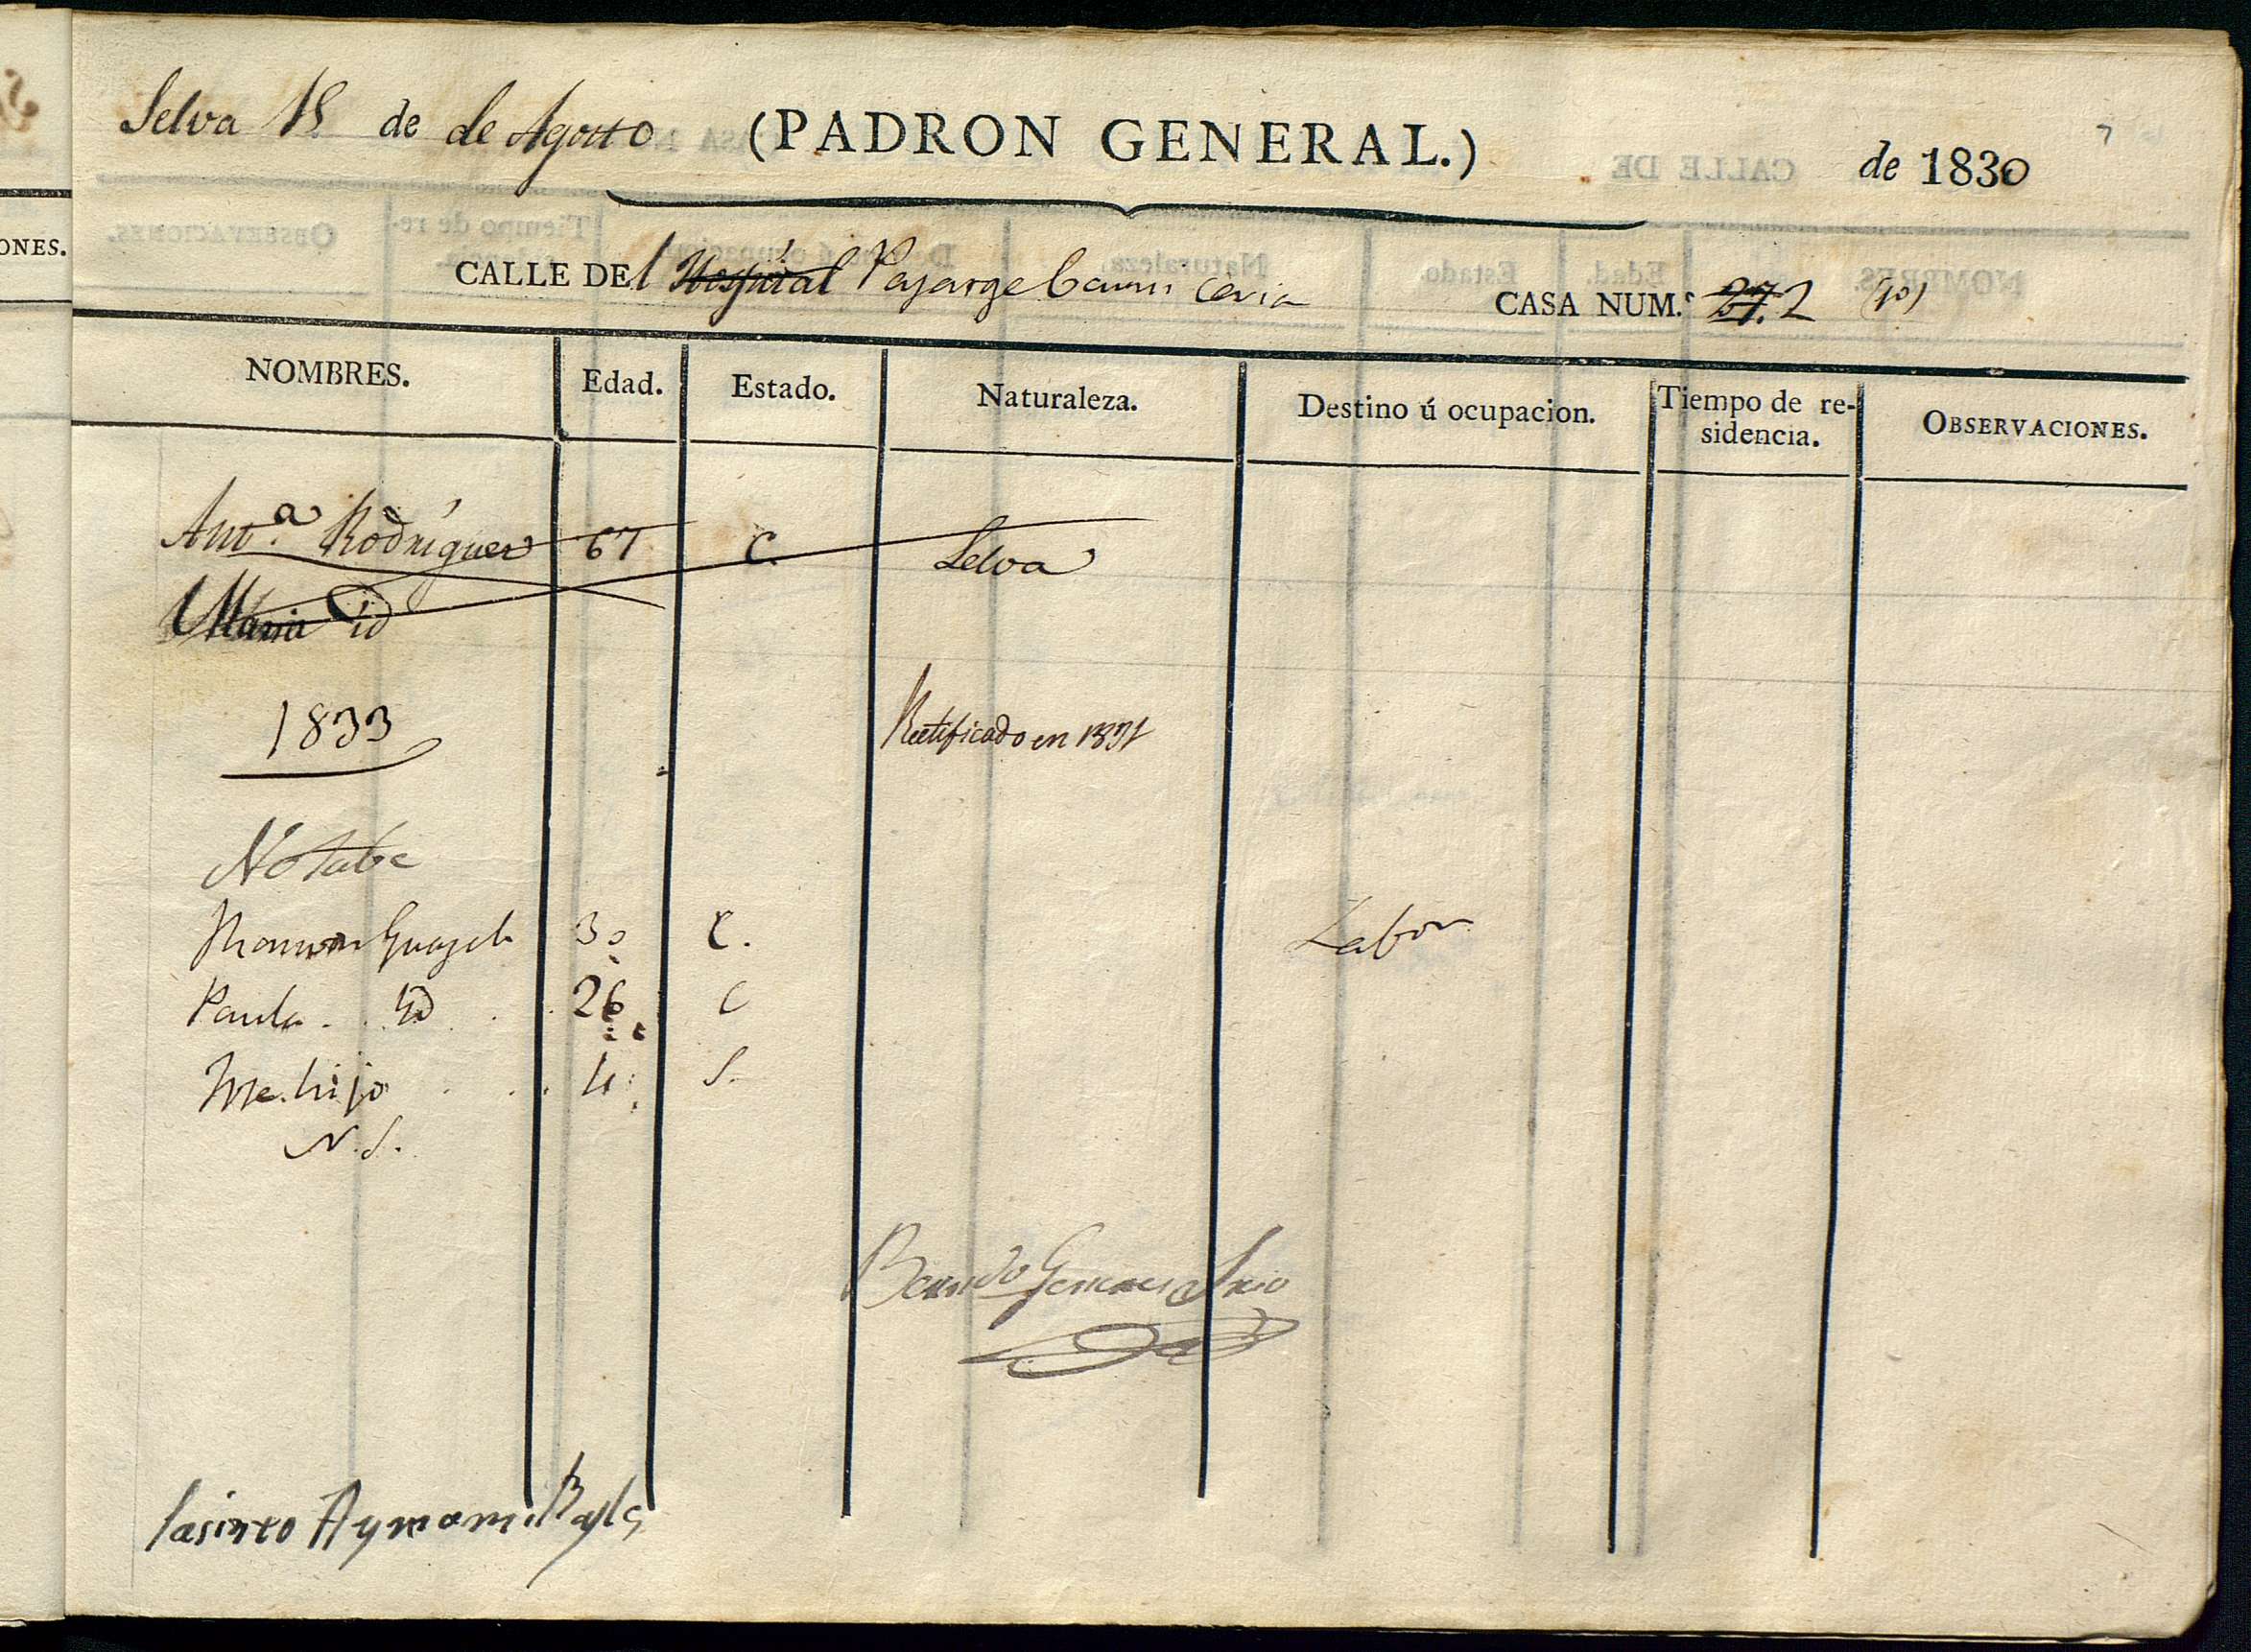 Selva 18 de de Agosto (PADRON GENERAL.) de 1830
CALLE DEl Hospital CASA NUM.º 37. 2 (40)
NOMBRES. Edad. Estado. Naturaleza. Destino ú ocupacion. Tiempo de re-sidencia. OBSERVACIONES.
Ant.ª Rodriguez 67 C. Selva
Maria id
1833 Rectificado en 1831
30 C. Labor
Paula . . Id . . 26 C
hijo . . . 4 S.
N. S.
Jasinto Aymami Bayle
ONES.